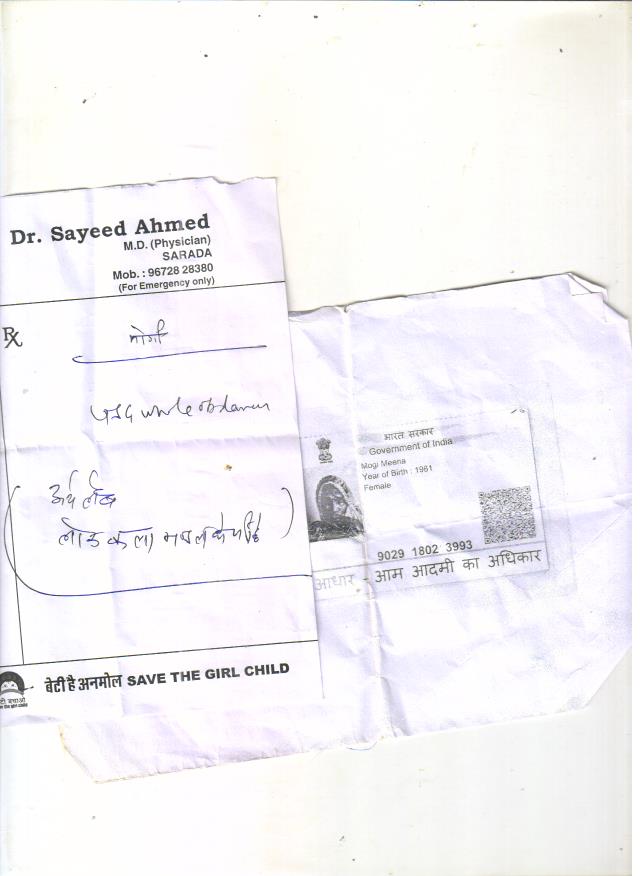 Dr. Sayeed Ahmed
M.D. (Physician)
SARADA
Mob. : 96728 28380
(For Emergency only)
Rx
मोगी
USG whole abdomen
अर्थ
लोक कला
बेटी है अनमोल SAVE THE GIRL CHILD
भारत सरकार
Government of India
Mogi Meena
Year of Birth : 1961
Female
9029 1802 3993
आधार - आम आदमी का अधिकार